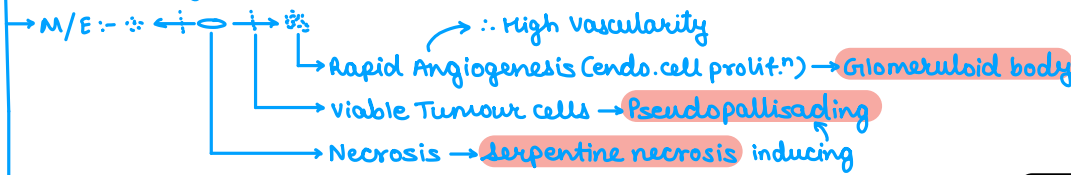 → M/E :-
∴ High Vascularity
Rapid Angiogenesis (endo.cell prolif.ⁿ) → Glomeruloid body
Viable Tumour cells → Pseudopallisading
Necrosis → Serpentine necrosis inducing